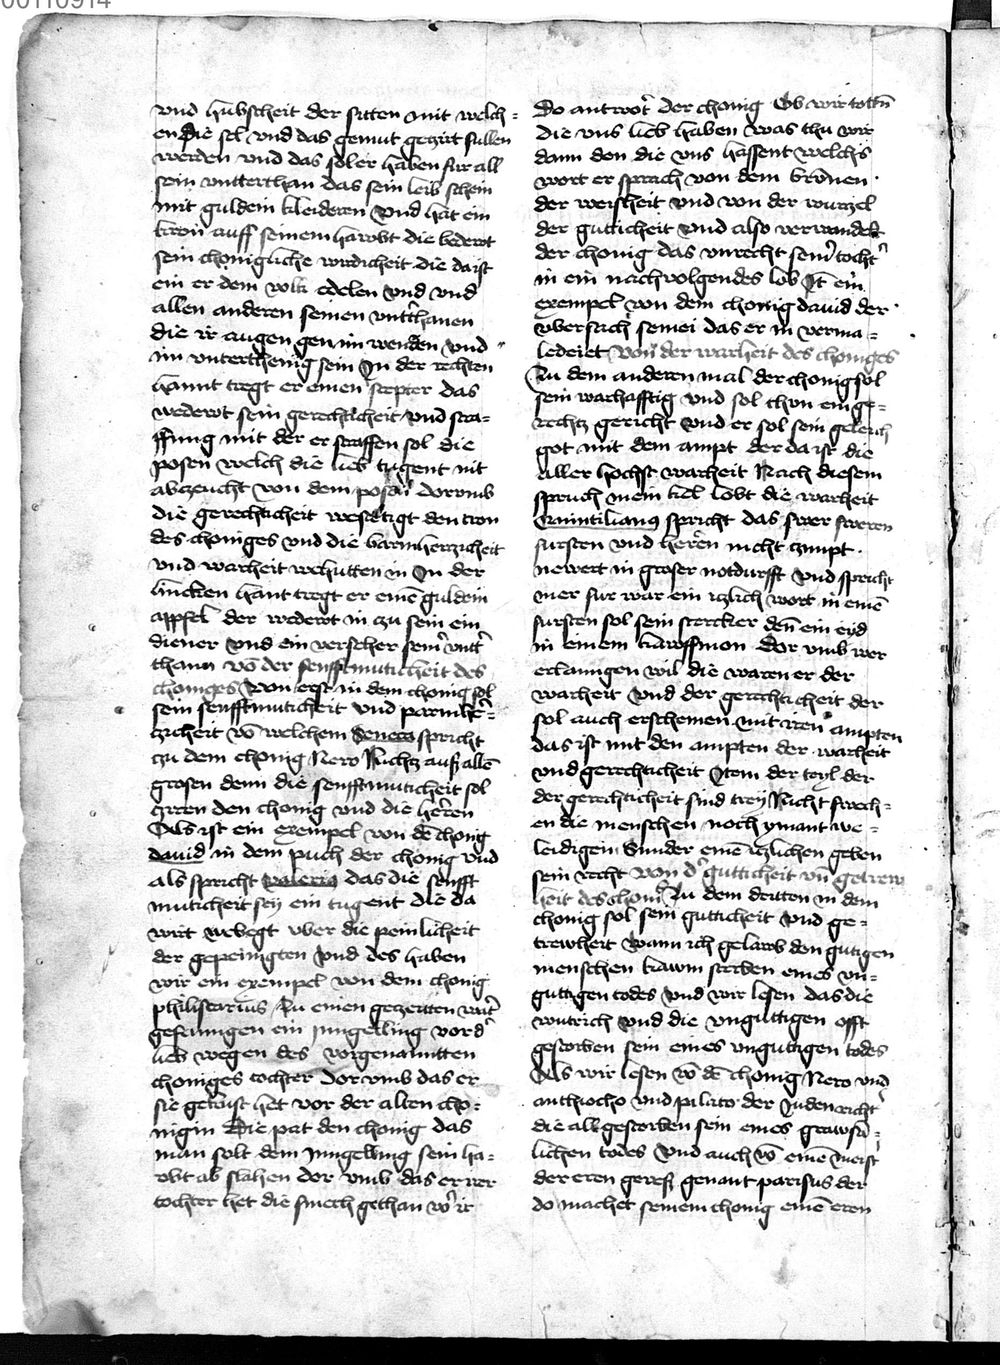 00110914
vnd hubscheit der sitten mit welch=
en die sel vnd das gemut geziert sullen
werden vnd das sol er haben fur all
sein vntterthan das sein leib schein
mit guldein kleideren vnd hat ein
kron auff seinem hawbt die bedewt
sein chonigliche wirdicheit die da ist
ein er dem volk edelen vnd vnd
allen anderen seinen vnttthanen
die ir augen gen im wenden vnd
im vnterthenig sein In der rechten
hannt tregt er einen scepter das
wedewt sein gerechticheit vnd stra=
ffung mit der er straffen sol die
posen welch die lieb tugent nit
abczeucht von dem posen dorvmb
die gerechticheit westetigt den tron
des choniges vnd die barmherczicheit
vnd warheit wehutten in In der
lincken hant tregt er eine guldein
appfel der wedewt in zu sein ein
diener vnd ein verseher seiner vntt
thann vo der senfftmuticheit des
choniges Von erst in dem chonig sol
sein senfftmuticheit vnd parmher=
tzicheit vo welchem Seneca spricht
tzu dem chonig Nero Nichtz auß alle
grosen denn die senfftmuticheit sol
zyren den chonig vnd die heren
Als ist ein exempel von de chonig
dauid in dem puch der chonig vnd
als spricht valerius das die senfft
muticheit sey ein tugent die da
wirt webegt vber die peinlicheit
der gepeinigten vnd des haben
wir ein exempel von dem chonig
philistratus Zu einen geczeitten wart
gefanngen ein jungelling vor d
lieb wegen des vorgenanntten
choniges tochter dorvmb das er
sie gekust het vor der alten cho=
nigin Die pat den chonig das
man solt dem jungelling sein ha=
wbt ab slahen dor vmb das er irer
tochter het die smech gethan vo ir
Do antwort der chonig Ob wir totten
die vns lieb haben was thu wir
dann den die vns hassent welchs
wort er sprach von dem brunen
der weisheit vnd von der wurczel
der guticheit vnd also verwandelt
der chonig das vnrecht seiner tocht
in ein nachvolgendes lob It ein
exempel von dem chonig dauid der
vbersach semei das er in verma=
ledeiet von der warheit des choniges
Zu dem anderen mal der chonig sol
sein warhafftig vnd sol thon ein ge=
rechtz gericht vnd er sol sein geleich
got mit dem ampt der da ist die
aller hochst warheit Nach diesem
spruch mein kel lobt die warheit
Quintilianus spricht das swer sweren
fursten vnd heren nicht czimpt
newert in groser notdurfft vnd spricht
mer fur war ein iczlich wort in eine
fursten sol sein stercker den ein eyd
in einem kawffmon Dor vmb wer
erlanngen wil die waren er der
warheit vnd der gerechticheit der
sol auch erscheinen mit iren ampten
das ist mit den ampten der warheit
vnd gerechticheit Item der teyl der
der gerechticheit sind trey Nicht swech=
en die menschen noch ymant we=
leidigen Sunder eine iczlichen geben
sein recht von d guticheit vn getrew
heit des choni Zu dem dritten in dem
chonig sol sein guticheit vnd ge=
trewheit wann ich gelawb den gutigen
menschen kawm sterben eines vn=
guttigen todes vnd wir lesen das die
wutrich vnd die vnguttigen offt
gestorben sein eines vnguttigen todes
Als wir lesen vo de chonig Nero vnd
anthiocho vnd pilato der Juden richt
die all gestorben sein eines grawsa=
lichen todes Vnd auch vo eine meist
der eren gereß genant parisus der
do machet seinem chonig eine eren